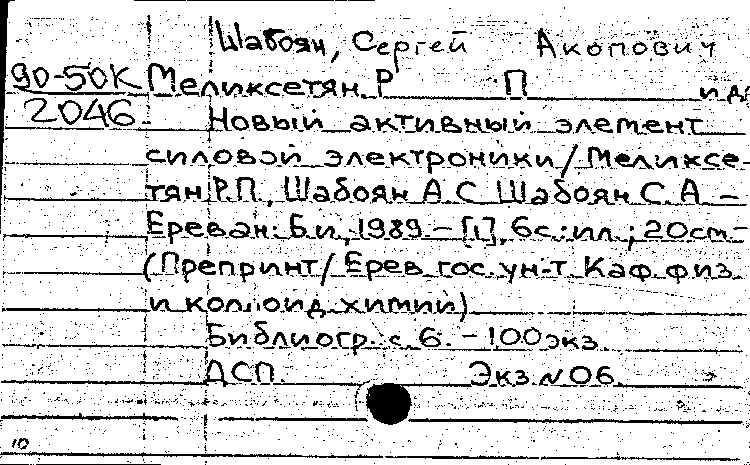 Шабоян, Сергей Акопович
90-50К Меликсетян Р П и др
2046 Новый активный элемент
силовой электроники/Меликсе-
тян Р.П., Шабоян А.С. Шабоян С.А. –
Ереван: Б.и., 1989. – [1], 6с.: ил.; 20см. –
(Препринт/ Ерев. гос. ун-т. Каф. физ.
и коллоид. химии)
Библиогр.: с. 6. – 100 экз.
ДСП. Экз. N 06.
10